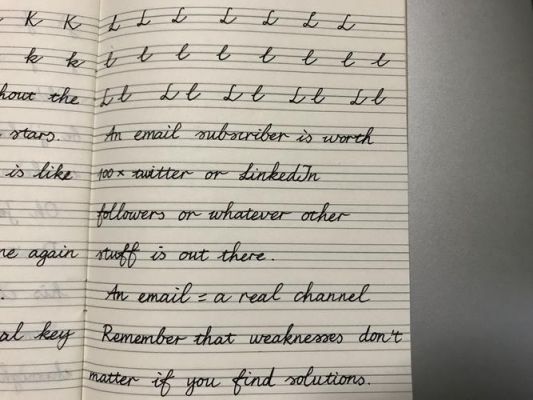 K K
k k
hout the
stars.
is like
ne again
al key
L L L L L L L
l l l l l l l l
Ll Ll Ll Ll Ll
An email subscriber is worth
100x twitter or LinkedIn
followers or whatever other
stuff is out there.
An email = a real channel
Remember that weaknesses don't
matter if you find solutions.